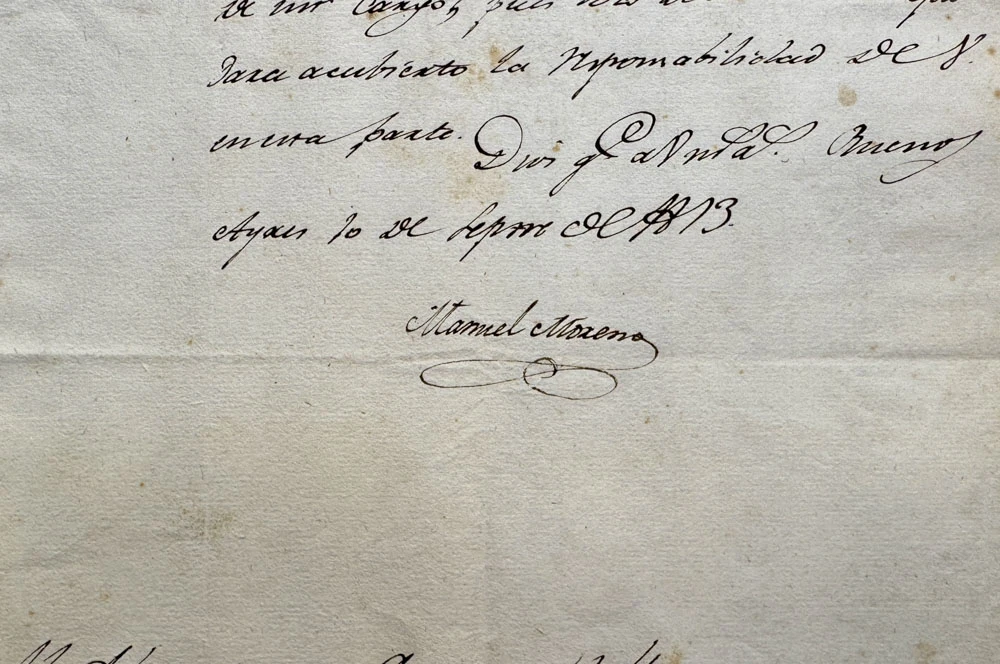 de mi cargo, pues
dara acubierto la responsabilidad de V.
en esta parte. Dios gᵉ a V m.ˢ a.ˢ Buenos
Ayres 10 de Sepre de 1813.
Manuel Moreno